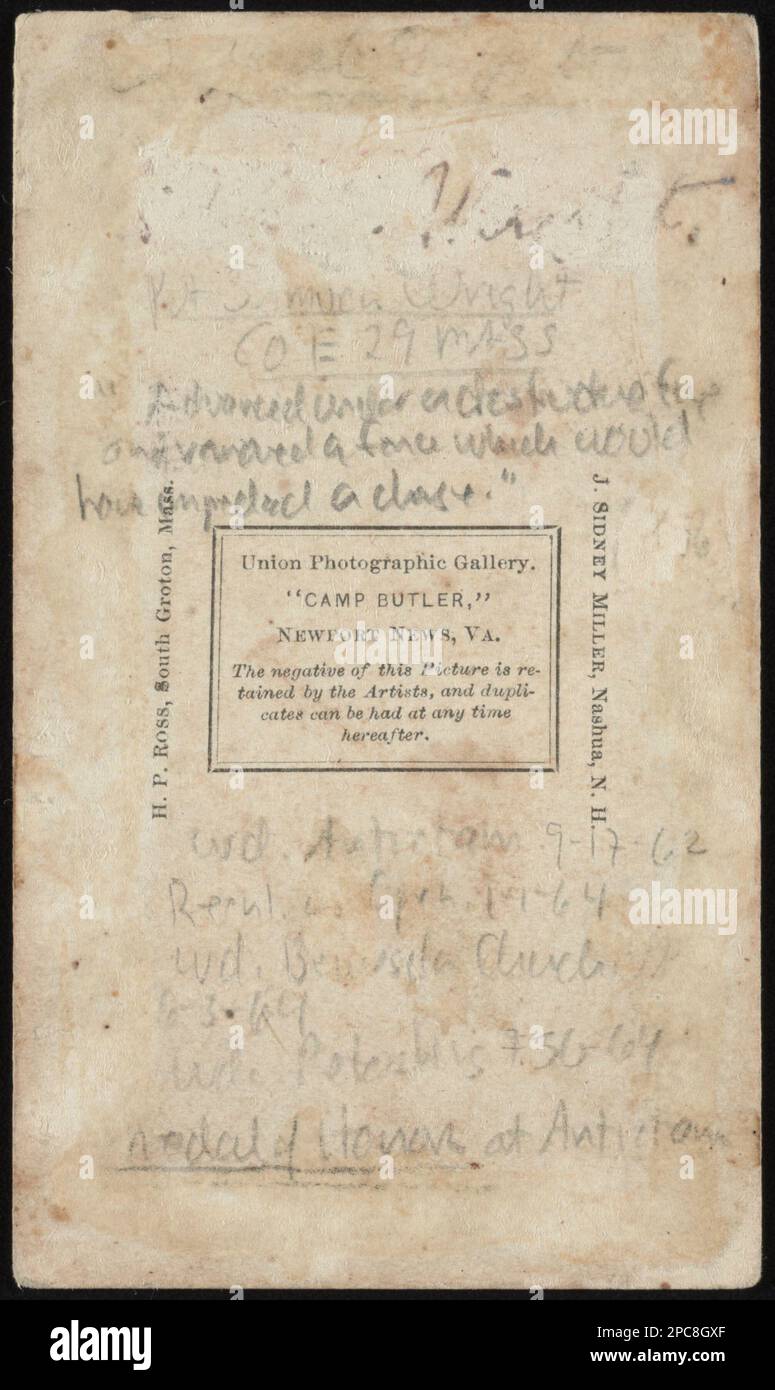 Wright.
Wright
CO E 29 MASS
"Advanced under a destructive fire
and removed a fence which would
have impeded a charge."
Union Photographic Gallery.
"CAMP BUTLER,"
NEWPORT NEWS, VA.
The negative of this Picture is re-
tained by the Artists, and dupli-
cates can be had at any time
hereafter.
H. P. ROSS, South Groton, Mass.
J. SIDNEY MILLER, Nashua, N. H.
wd. Antietam 9-17-62
1-1-64
wd. Bethesda Church
6-3-64
wd. Petersburg
medal of Honor at Antietam
alamy
Image ID: 2PC8GXF
www.alamy.com